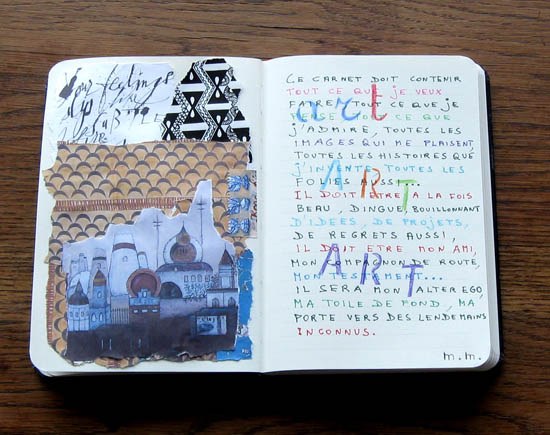 your feelings
CE CARNET DOIT CONTENIR
TOUT CE QUE JE VEUX
FAIRE, TOUT CE QUE JE
PENSE, TOUT CE QUE
J'ADMIRE, TOUTES LES
IMAGES QUI ME PLAISENT,
TOUTES LES HISTOIRES QUE
J'INVENTE, TOUTES LES
FOLIES AUSSI...
IL DOIT ETRE A LA FOIS
BEAU, DINGUE, BOUILLONNANT
D'IDEES, DE PROJETS,
DE REGRETS AUSSI,
IL DOIT ETRE MON AMI,
MON COMPAGNON DE ROUTE,
MON TESTAMENT...
IL SERA MON ALTER EGO,
MA TOILE DE FOND, MA
PORTE VERS DES LENDEMAINS
INCONNUS.
art
ART
ART
M.M.